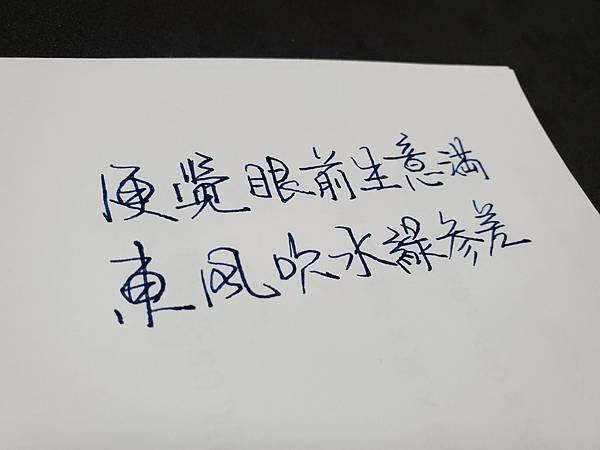 便覺眼前生意滿
東風吹水綠參差